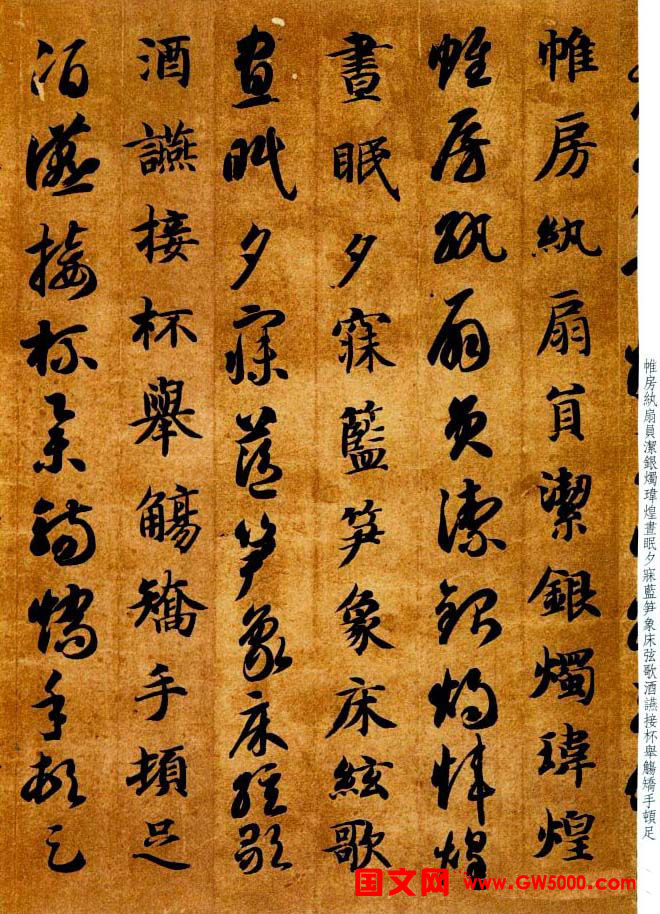 帷房紈扇員潔銀燭瑋煌
帷房紈扇員潔銀燭瑋煌
晝眠夕寐籃笋象床絃歌
晝眠夕寐藍笋象床絃歌
酒讌接杯舉觴矯手頓足
酒讌接杯舉觴矯手頓足
帷房紈扇員潔銀燭瑋煌晝眠夕寐藍笋象床弦歌酒讌接杯舉觴矯手頓足
国文网 www.GW5000.com